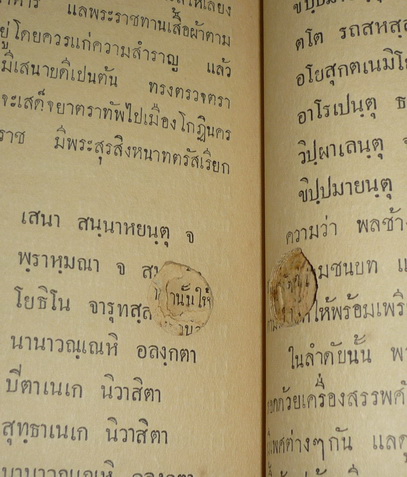 แลพระราชทานเสื้อผ้าตาม
โดยควรแก่ความสำราญ แล้ว
มีเสนาบดีเปนต้น ทรงตรวจตรา
จะเสด็จยาตราทัพไปเมืองโกฏินคร
ราช มีพระสุรสิงหนาทตรัสเรียก
เสนา สนฺนาหยนฺตุ จ
พฺราหฺมณา จ
โยธิโน จารุทสฺส
นานาวณฺเณหิ อลงฺกตา
ปีตาเนเก นิวาสิตา
สุทฺธาเนเก นิวาสิตา
นานาวณฺเณหิ อลงฺกตา
ขิปฺปมา
ตโต รถสหสฺส
อโยสุกตเนมิโ
อาโรเปนฺตุ ธ
วิปฺผาเลนฺตุ
ขิปฺปมายนฺตุ
ความว่า พลช้าง
มชนบท แ
ให้พร้อมเพรี
ในลำดับนั้น พร
ด้วยเครื่องสรรพศั
ต่างๆกัน แลดู